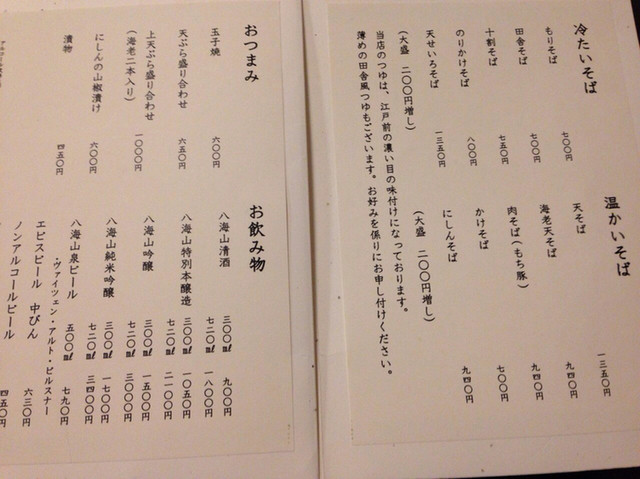 冷たいそば
もりそば 七〇〇円
田舎そば 七〇〇円
十割そば 七五〇円
のりかけそば 八〇〇円
天せいろそば 一三五〇円
(大盛 二〇〇円増し)
温かいそば
天そば 一三五〇円
海老天そば 九四〇円
肉そば(もち豚) 九四〇円
かけそば 七〇〇円
にしんそば 九四〇円
(大盛 二〇〇円増し)
当店のつゆは、江戸前の濃い目の味付けになっております。
薄めの田舎風つゆもございます。お好みを係りにお申し付けください。
おつまみ
玉子焼 六〇〇円
天ぷら盛り合わせ 六五〇円
上天ぷら盛り合わせ
(海老二本入り) 一〇〇〇円
にしんの山椒漬け 六〇〇円
漬物 四五〇円
お飲み物
八海山清酒 三〇〇㎖ 九〇〇円
七二〇㎖ 一八〇〇円
八海山特別本醸造 三〇〇㎖ 一〇五〇円
七二〇㎖ 二一〇〇円
八海山吟醸 三〇〇㎖ 一五〇〇円
七二〇㎖ 三〇〇〇円
八海山純米吟醸 三〇〇㎖ 一七〇〇円
七二〇㎖ 三四〇〇円
八海山泉ビール 五〇〇㎖ 七九〇円
・ヴァイツェン・アルト・ピルスナー
エビスビール 中びん 六三〇円
ノンアルコールビール 四五〇円